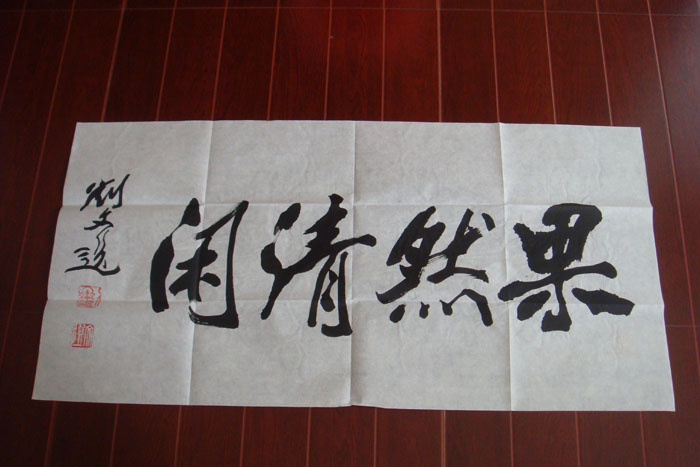 果然清闲
刘文